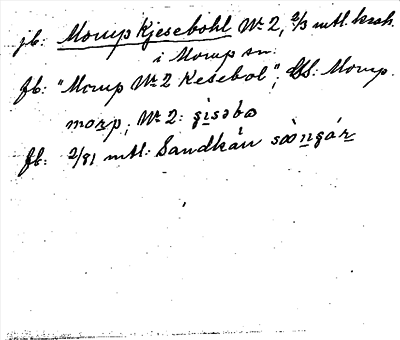 jb: Morup Kjesebohl No 2, 2/3 mtl. krsk.
i Morup sn.
fb: "Morup No 2 Kesebol"; GS: Morup.
morp; No 2: gisəbo
fb: 2/81 mtl: Sandkån sòòngár